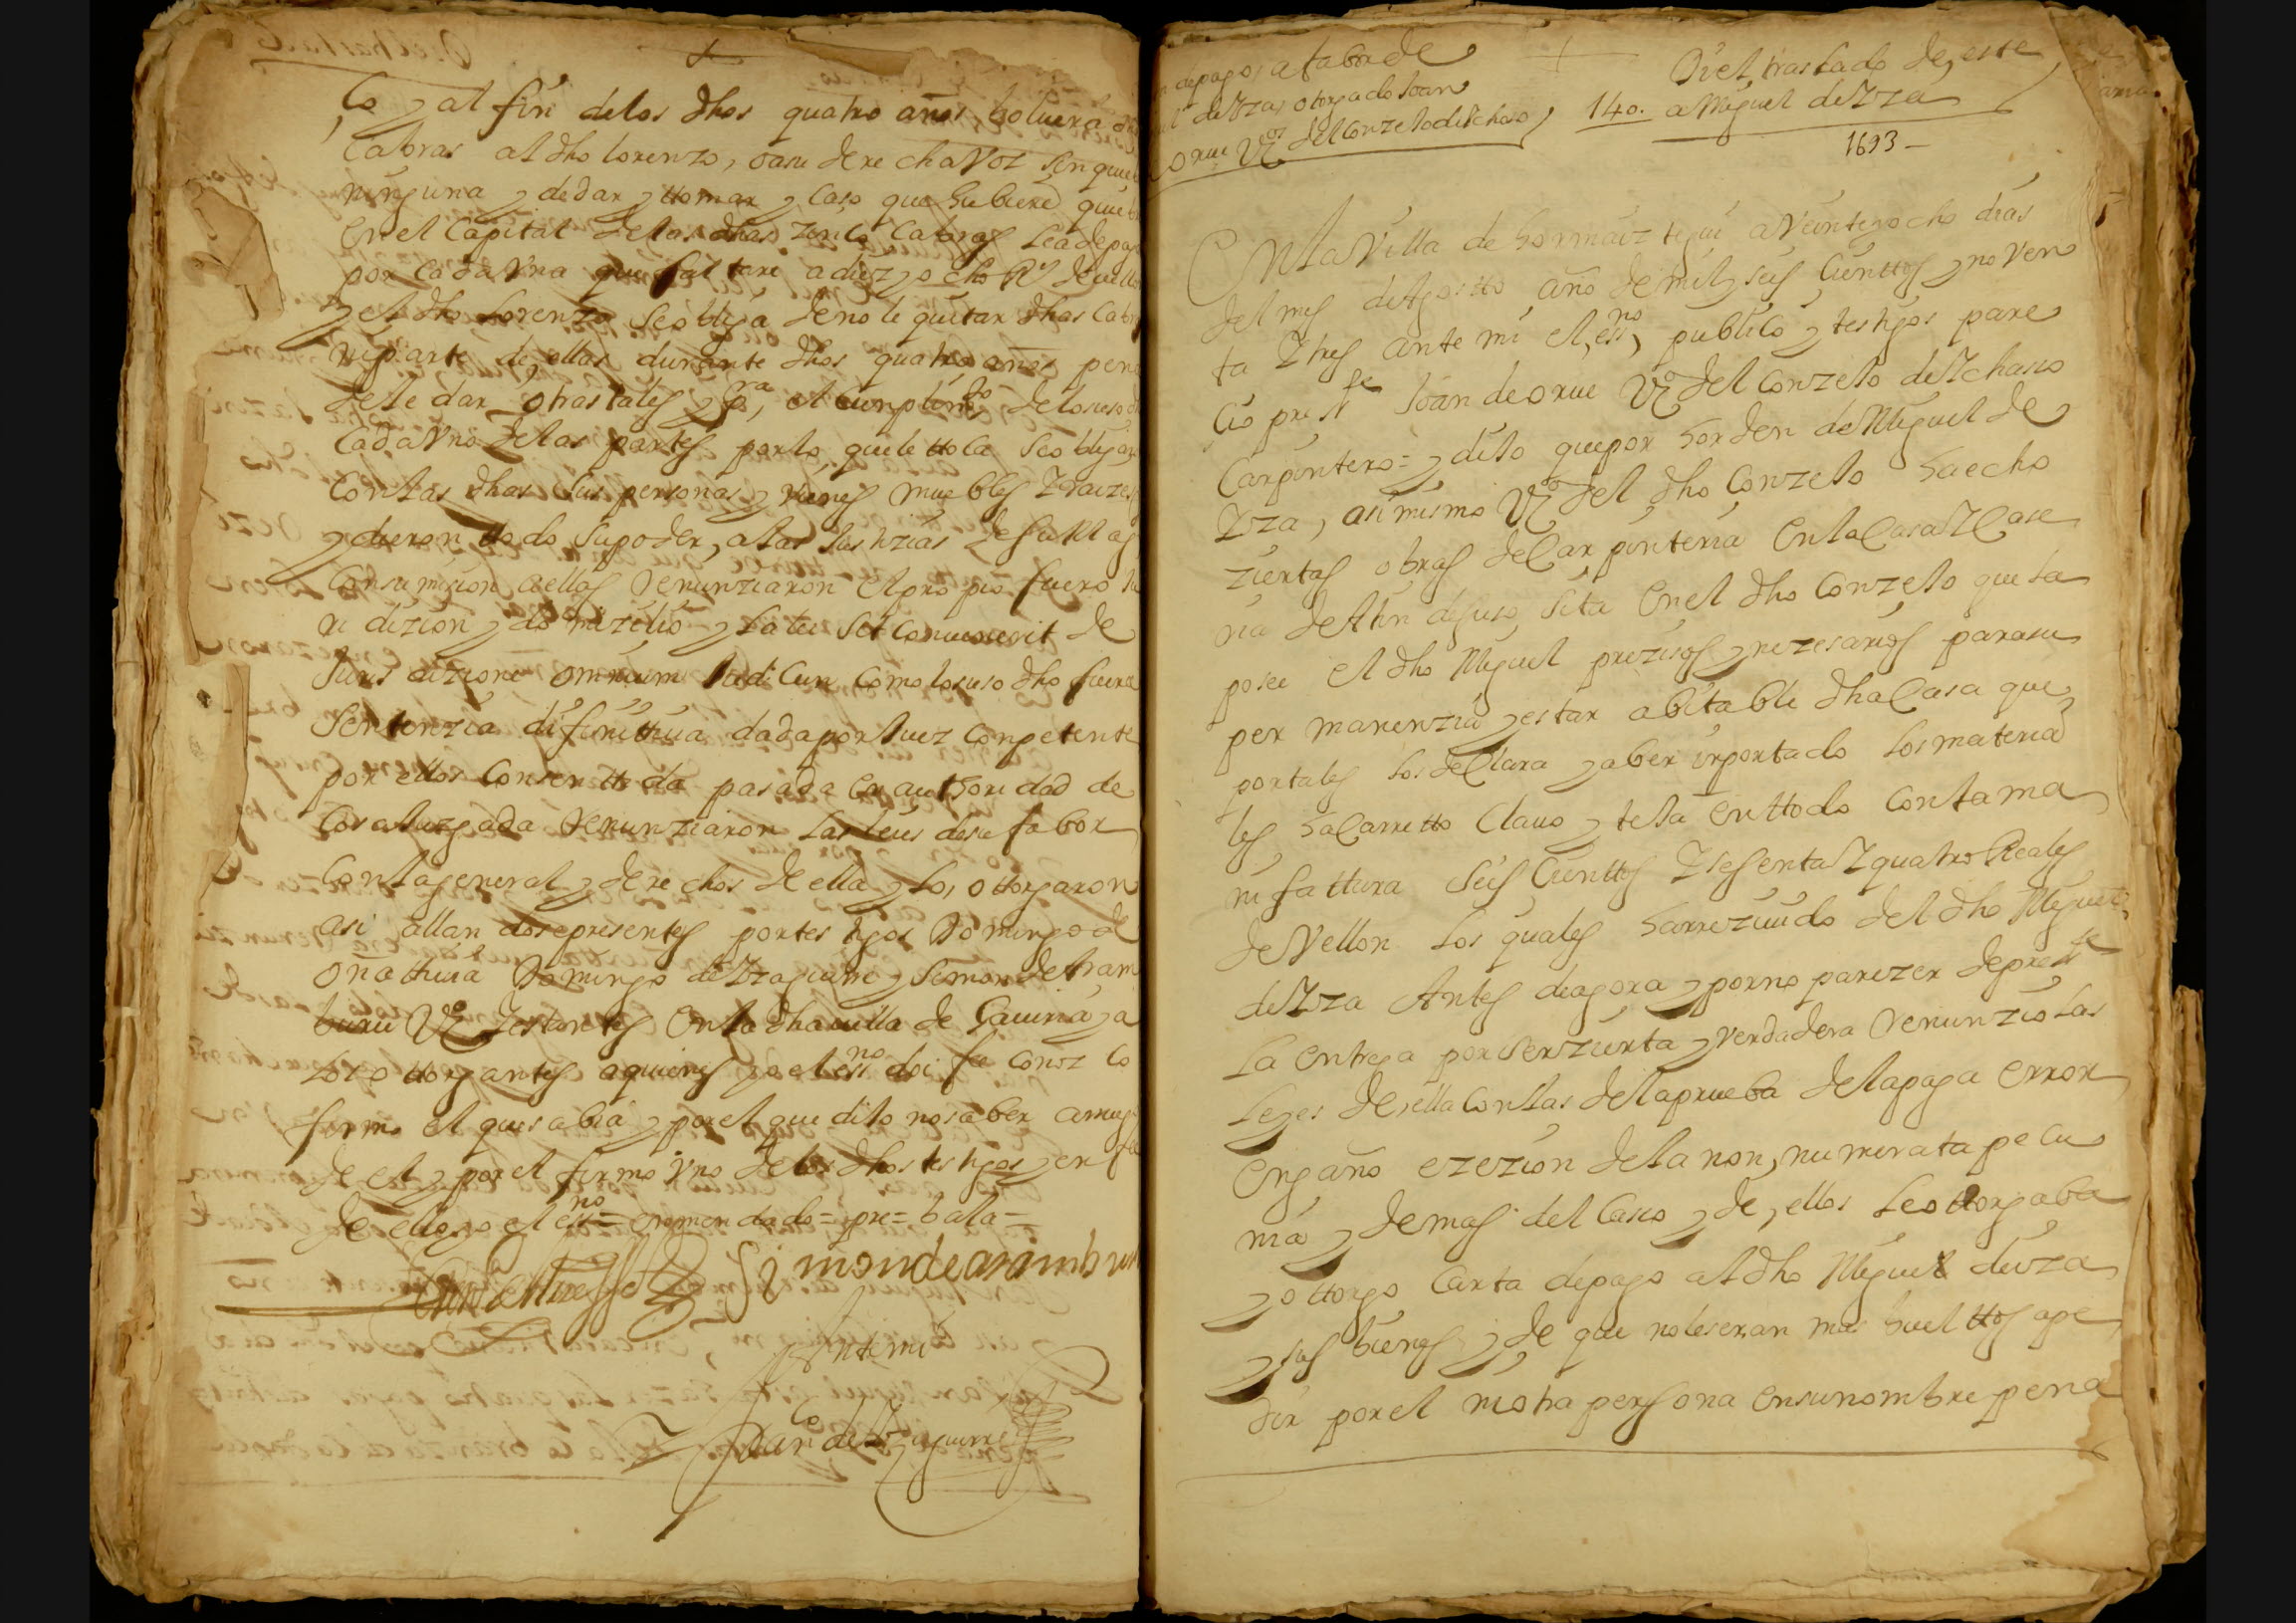 co y al fin de los dhos quatro años bolvera
cabras al dho lorenzo, o a su derecha voz sin quie
ninguna y de dar y ttomar y caso que hubiere quie
en el capital de las dhas zinco cabras sea de pag
por cada vna que faltare a diez y ocho Rs de vello
y el dho lorenzo se obliga de no le quitar dhas cabr
ni parte de ellas durante dhos quatro años pena
de le dar otras tales y pra el cunplimto de lo suso
cada vno de las partes por lo que le ttoca se obligar
con las dhas sus personas y vienes muebles Y raizes
y dieron ttodo su poder, a las Justizias de su Magd
con sumision a ellas Renunziaron el propio fuero Ju
ridizion y domizilio y la lei sit convenerit de
Juris dizione omnium Judicun como lo suso dho fuera
sentenzia difinittiua dada por Juez conpetente
por ellos consenttida pasada en authoridad de
cosa Juzgada Renunziaron las leies de su fabor
con la general y derechos de ella y lo ottorgaron
asi allandose presentes por testigos Domingo de
oñattiuia Domingo de Yzaguirre y Simon de Aram
buru Vos Y estantes en la dha villa de Gauiria y a
los ottorgantes a quienes yo el essno doi fee conozco
firmo el que sabia y por el que dijo no saber a ruego
de el y por el firmo vno de los dhos testigos y en fe
de ello yo el essno = enmendado = pre = bala =
Simon de aramburu
Ante mi
Juan de Yzaguirre
de pago a fabor de
de Yza otorgado Joan
orue Vo del Conzejo de Ychaso
Di el traslado de este
140. a Miguel de Yza
1693
En la Villa de hormaiztegui a veinte y ocho dias
del mes de Agostto año de mil y seis cienttos y noven
ta Y tres ante mi el essno publico y testigos pare
cio preste Joan de orue Vo del conzejo de Ychaso
Carpintero = y dijo que por horden de Miguel de
Yza, asi mismo Vo del dho Conzejo ha echo
ziertas obras de Carpinteria en la Casa Y Case
ria de Atin de suso sita en el dho Conzejo que la
posee el dho Miguel prezisos y nezesarios para su
permanenzia y estar abitable dha Casa que
por tales los declara y aber inportado los materia
les, hacarretto clauo y teja en ttodo con la ma
nifattura seis cienttos Y sesenta Y quatro Reales
de Vellon los quales ha rrezuuido del dho Miguel
de Yza Antes de agora y por no parezer de preste
la entrega por ser zierta y verdadera Renunzio las
Leyes de ella con las de la prueba de la paga error
engaño ezezion de la non, numerata pecu
nia y demas del caso y de, ellos le ottorgaba
y ottorgo carta de pago al dho Miguel de iza
y sus bienes y de que no le seran mas bueltos a pe
dir por el ni otra persona en su nombre pena